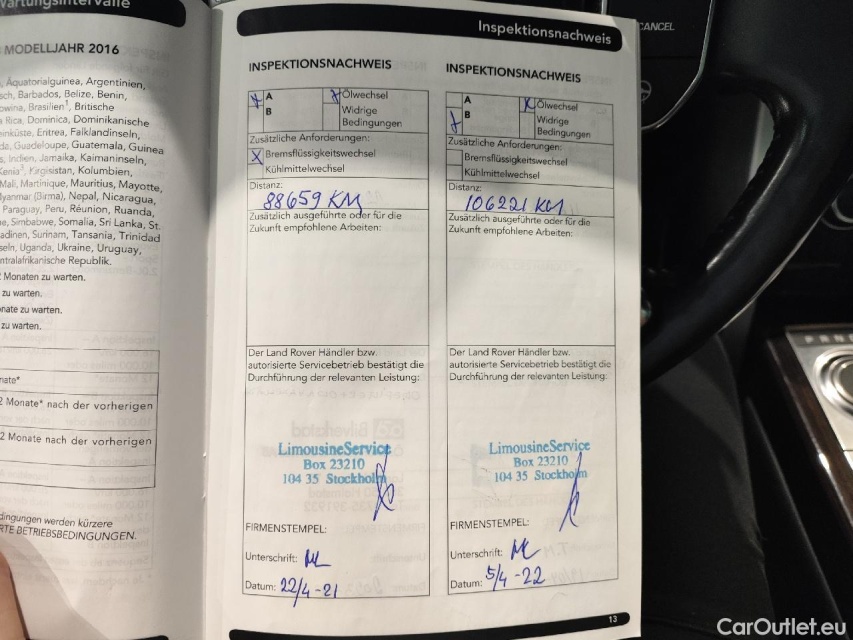 Wartungsintervalle
MODELLJAHR 2016
Äquatorialguinea, Argentinien,
Barbados, Belize, Benin,
Brasilien¹, Britische
Rica, Dominica, Dominikanische
Eritrea, Falklandinseln,
Guadeloupe, Guatemala, Guinea
Indien, Jamaika, Kaimaninseln,
Kirgisistan, Kolumbien,
Mali, Martinique, Mauritius, Mayotte,
Myanmar (Birma), Nepal, Nicaragua,
Paraguay, Peru, Réunion, Ruanda,
Simbabwe, Somalia, Sri Lanka, St.
Surinam, Tansania, Trinidad
Uganda, Ukraine, Uruguay,
ntralafrikanische Republik.
2 Monaten zu warten.
zu warten.
nate zu warten.
zu warten.
nate*
2 Monate* nach der vorherigen
2 Monate nach der vorherigen
dingungen werden kürzere
RTE BETRIEBSBEDINGUNGEN.
Inspektionsnachweis
INSPEKTIONSNACHWEIS
A
B
Ölwechsel
Widrige
Bedingungen
Zusätzliche Anforderungen:
X Bremsflüssigkeitswechsel
Kühlmittelwechsel
Distanz:
88659 KM
Zusätzlich ausgeführte oder für die
Zukunft empfohlene Arbeiten:
Der Land Rover Händler bzw.
autorisierte Servicebetrieb bestätigt die
Durchführung der relevanten Leistung:
LimousineService
Box 23210
104 35 Stockholm
FIRMENSTEMPEL:
Unterschrift:
Datum: 22/4-21
INSPEKTIONSNACHWEIS
A
B
Ölwechsel
Widrige
Bedingungen
Zusätzliche Anforderungen:
Bremsflüssigkeitswechsel
Kühlmittelwechsel
Distanz:
106221 KM
Zusätzlich ausgeführte oder für die
Zukunft empfohlene Arbeiten:
Der Land Rover Händler bzw.
autorisierte Servicebetrieb bestätigt die
Durchführung der relevanten Leistung:
LimousineService
Box 23210
104 35 Stockholm
FIRMENSTEMPEL:
Unterschrift:
Datum: 5/4-22
13
CANCEL
CarOutlet.eu